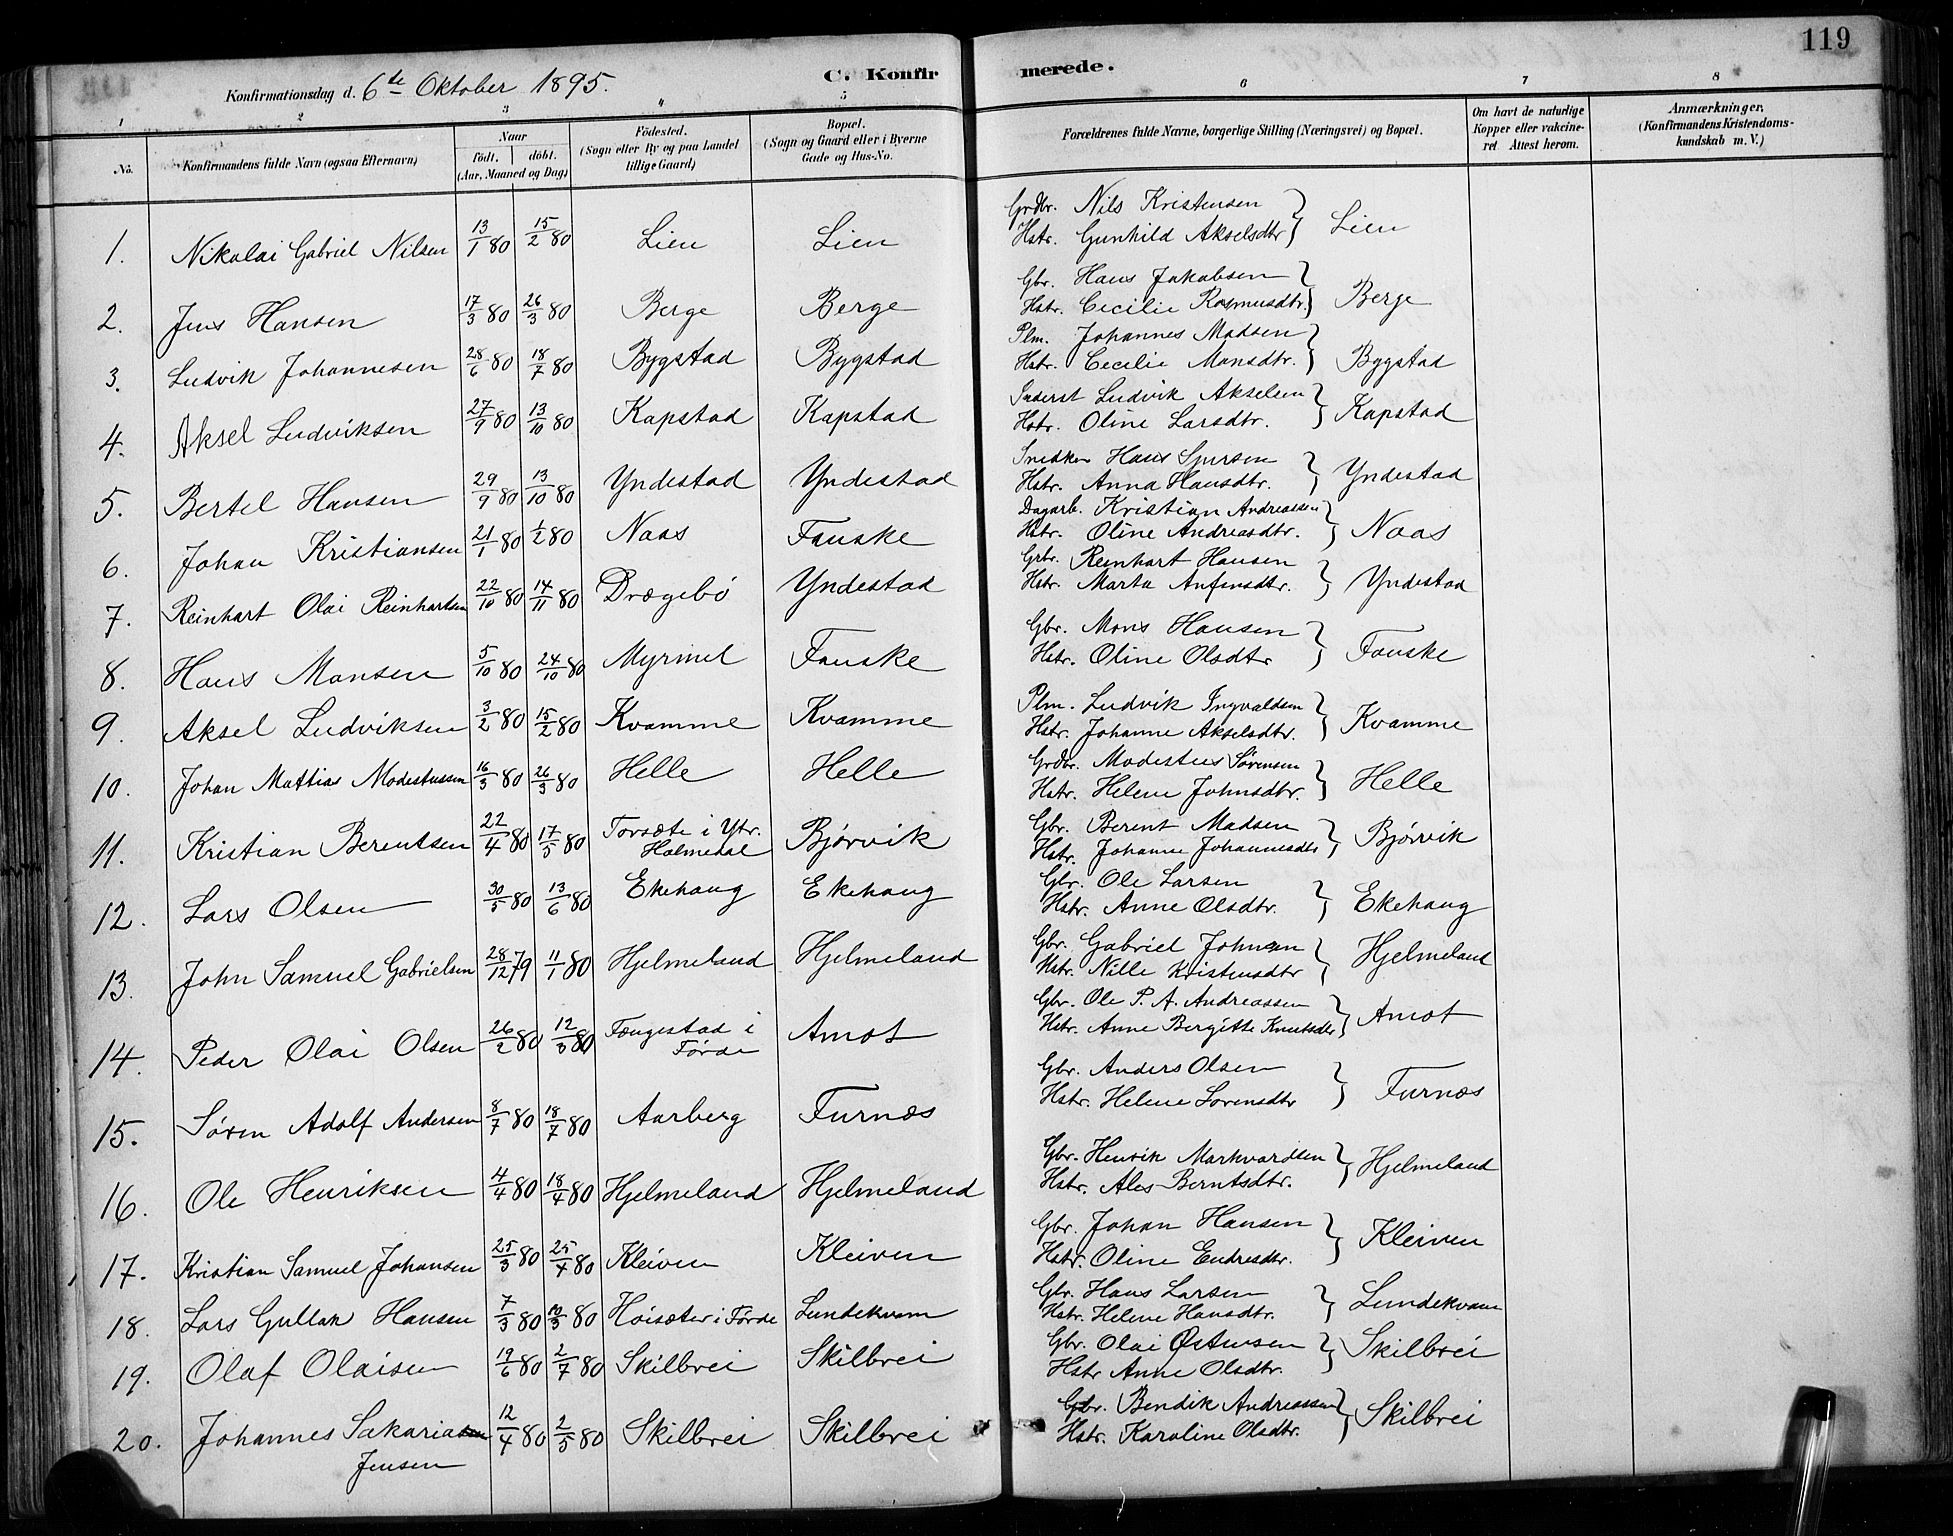 119
Konfirmationsdag d. 6te Oktober 1895. C. Konfirmerede.
1 2 3 4 5 6 7 8
No. Konfirmandens fulde Navn (ogsaa Efternavn) Naar födt. döbt. (Aar, Maaned og Dag) Födested. (Sogn eller By og paa Landet tillige Gaard) Bopæl. (Sogn og Gaard eller i Byerne Gade og Hus-No. Forældrenes fulde Navne, borgerlige Stilling (Næringsvei) og Bopæl. Om havt de naturlige Kopper eller vakcineret Attest herom. Anmærkninger. (Konfirmandens Kristendomskundskab m. V.)
1. Nikolai Gabriel Nilsen 13/1 80 15/2 80 Lien Lien Grdbr. Nils Kristensen
Hstr. Gunhild Akselsdtr } Lien
2. Jens Hansen 17/3 80 26/3 80 Berge Berge Gbr. Hans Jakobsen
Hstr. Cecilie Rasmusdtr. } Berge
3. Ludvik Johannesen 28/6 80 18/7 80 Bygstad Bygstad Plm. Johannes Madsen
Hstr. Cecilie Monsdtr. } Bygstad
4. Aksel Ludviksen 27/9 80 13/10 80 Kapstad Kapstad Inderst Ludvik Akselsen
Hstr. Oline Larsdtr. } Kapstad
5. Bertel Hansen 29/9 80 13/10 80 Yndestad Yndestad Hans
Hstr. Anna Hansdtr. } Yndestad
6. Johan Kristiansen 21/1 80 1/2 80 Naas Fauske Dagarb. Kristian Andreassen
Hstr. Oline Andreasdtr. } Naas
7. Reinhart Olai Reinhartsen 22/10 80 14/11 80 Drægebö Yndestad Grbr. Reinhart Hansen
Hstr. Marta Anfinsdtr. } Yndestad
8. Hans Monsen 5/10 80 24/10 80 Myrmel Fauske Gbr. Mons Hansen
Hstr. Oline Olsdtr } Fauske
9. Aksel Ludviksen 3/2 80 15/2 80 Kvamme Kvamme Plm. Ludvik Ingvaldsen
Hstr. Johanne Akselsdtr. } Kvamme
10. Johan Mattias Modestussen 16/3 80 26/3 80 Helle Helle Grdbr. Modestus Sørensen
Hstr. Helene Johnsdtr. } Helle
11. Kristian Berentsen 22/4 80 17/5 80 Torsæte i Ytr. Holmedal Bjørvik Gbr. Berent Madsen
Hstr. Johanne Johannesdtr } Bjørvik
12. Lars Olsen 30/5 80 13/6 80 Ekehaug Ekehaug Gbr. Ole Larsen
Hstr. Anne Olsdtr. } Ekehaug
13. John Samuel Gabrielsen 28/12 79 11/1 80 Hjelmeland Hjelmeland Gbr. Gabriel Johnsen
Hstr. Nille Kristensdtr } Hjelmeland
14. Peder Olai Olsen 26/2 80 12/3 80 Fængestad i Førde Amot Gbr. Ole P. A. Andreassen
Hstr. Anne Bergitte Knutsdtr } Amot
15. Søren Adolf Andersen 8/7 80 18/7 80 Aarberg Furnæs Gbr. Anders Olsen
Hstr. Helene Sorensdtr } Furnæs
16. Ole Henriksen 4/4 80 18/4 80 Hjelmeland Hjelmeland Gbr. Henrik Markvardsen
Hstr. Ales Berntsdtr. } Hjelmeland
17. Kristian Samuel Johansen 25/3 80 25/4 80 Kleiven Kleiven Gbr. Johan Hansen
Hstr. Oline Endresdtr. } Kleiven
18. Lars Gullak Hansen 7/3 80 10/3 80 Høisæter i Førde Lundekvam Gbr. Hans Larsen
Hstr. Helene Hansdtr. } Lundekvam
19. Olaf Olaisen 19/6 80 2/7 80 Skilbrei Skilbrei Gbr. Olai Østensen
Hstr Anne Olsdtr. } Skilbrei
20. Johannes Sakarias Jensen 12/4 80 2/5 80 Skilbrei Skilbrei Gbr. Bendik Andreassen
Hstr. Karoline Olsdtr. } Skilbrei